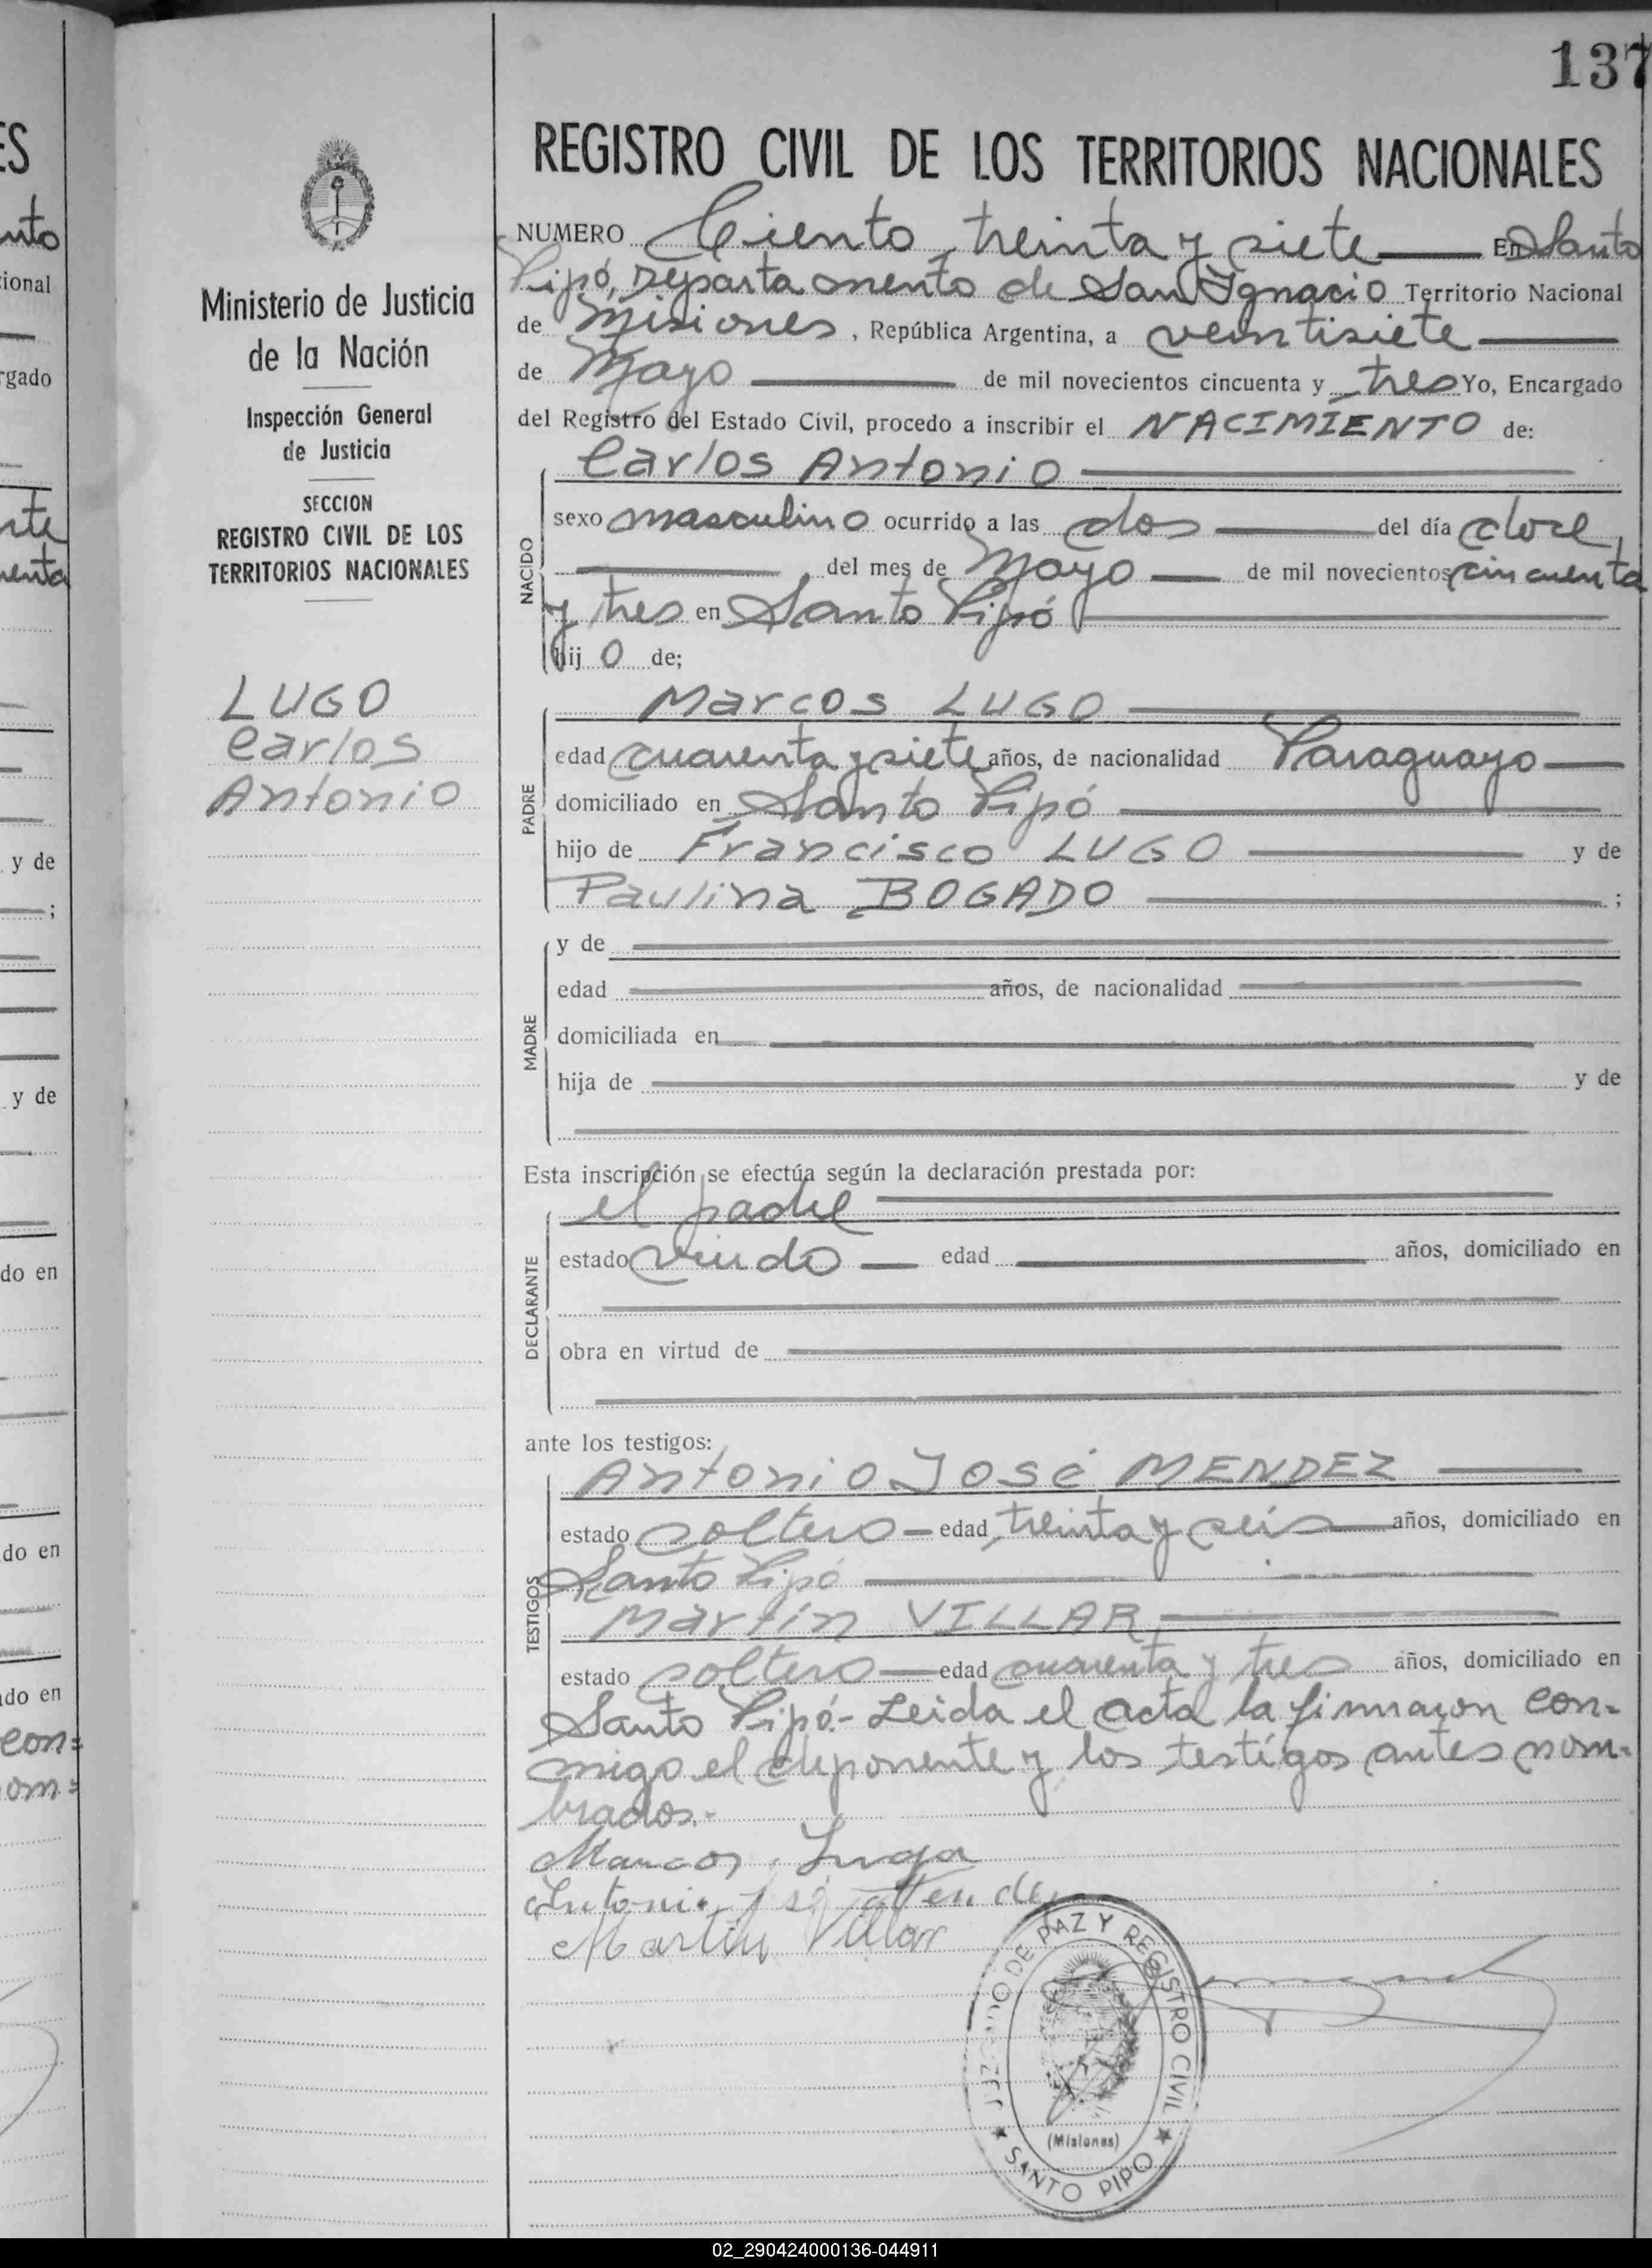 137
REGISTRO CIVIL DE LOS TERRITORIOS NACIONALES
NUMERO Ciento treinta y siete En Santo
Pipó, Departamento de San Ignacio Territorio Nacional
de Misiones, República Argentina, a veintisiete
de Mayo de mil novecientos cincuenta y tres Yo, Encargado
del Registro del Estado Civil, procedo a inscribir el NACIMIENTO de:
Carlos Antonio
sexo masculino ocurrido a las dos del día doce
del mes de Mayo de mil novecientos cincuenta
y tres en Santo Pipó
hijo de;
NACIDO
Marcos LUGO
edad cuarenta y siete años, de nacionalidad Paraguayo
domiciliado en Santo Pipó
hijo de Francisco LUGO y de
Paulina BOGADO ;
PADRE
y de
edad años, de nacionalidad
domiciliada en
hija de y de
MADRE
Esta inscripción se efectúa según la declaración prestada por:
el padre
estado viudo edad años, domiciliado en
obra en virtud de
DECLARANTE
ante los testigos:
Antonio José MENDEZ
estado soltero - edad treinta y seis años, domiciliado en
Santo Pipó
Martín VILLAR
estado soltero edad cuarenta y tres años, domiciliado en
TESTIGOS
Santo Pipó.- Leida el acta la firmaron con-
migo el deponente y los testigos antes nom-
brados.-
Marcos Lugo
Antonio José Mendez
Martin Villar
JUZGADO DE PAZ Y REGISTRO CIVIL
(Misiones)
SANTO PIPO
Ministerio de Justicia
de la Nación
Inspección General
de Justicia
SECCION
REGISTRO CIVIL DE LOS
TERRITORIOS NACIONALES
LUGO
Carlos
Antonio
ES
nto
ional
rgado
nte
enta
y de
;
y de
do en
do en
do en
con=
om=
02_290424000136-044911